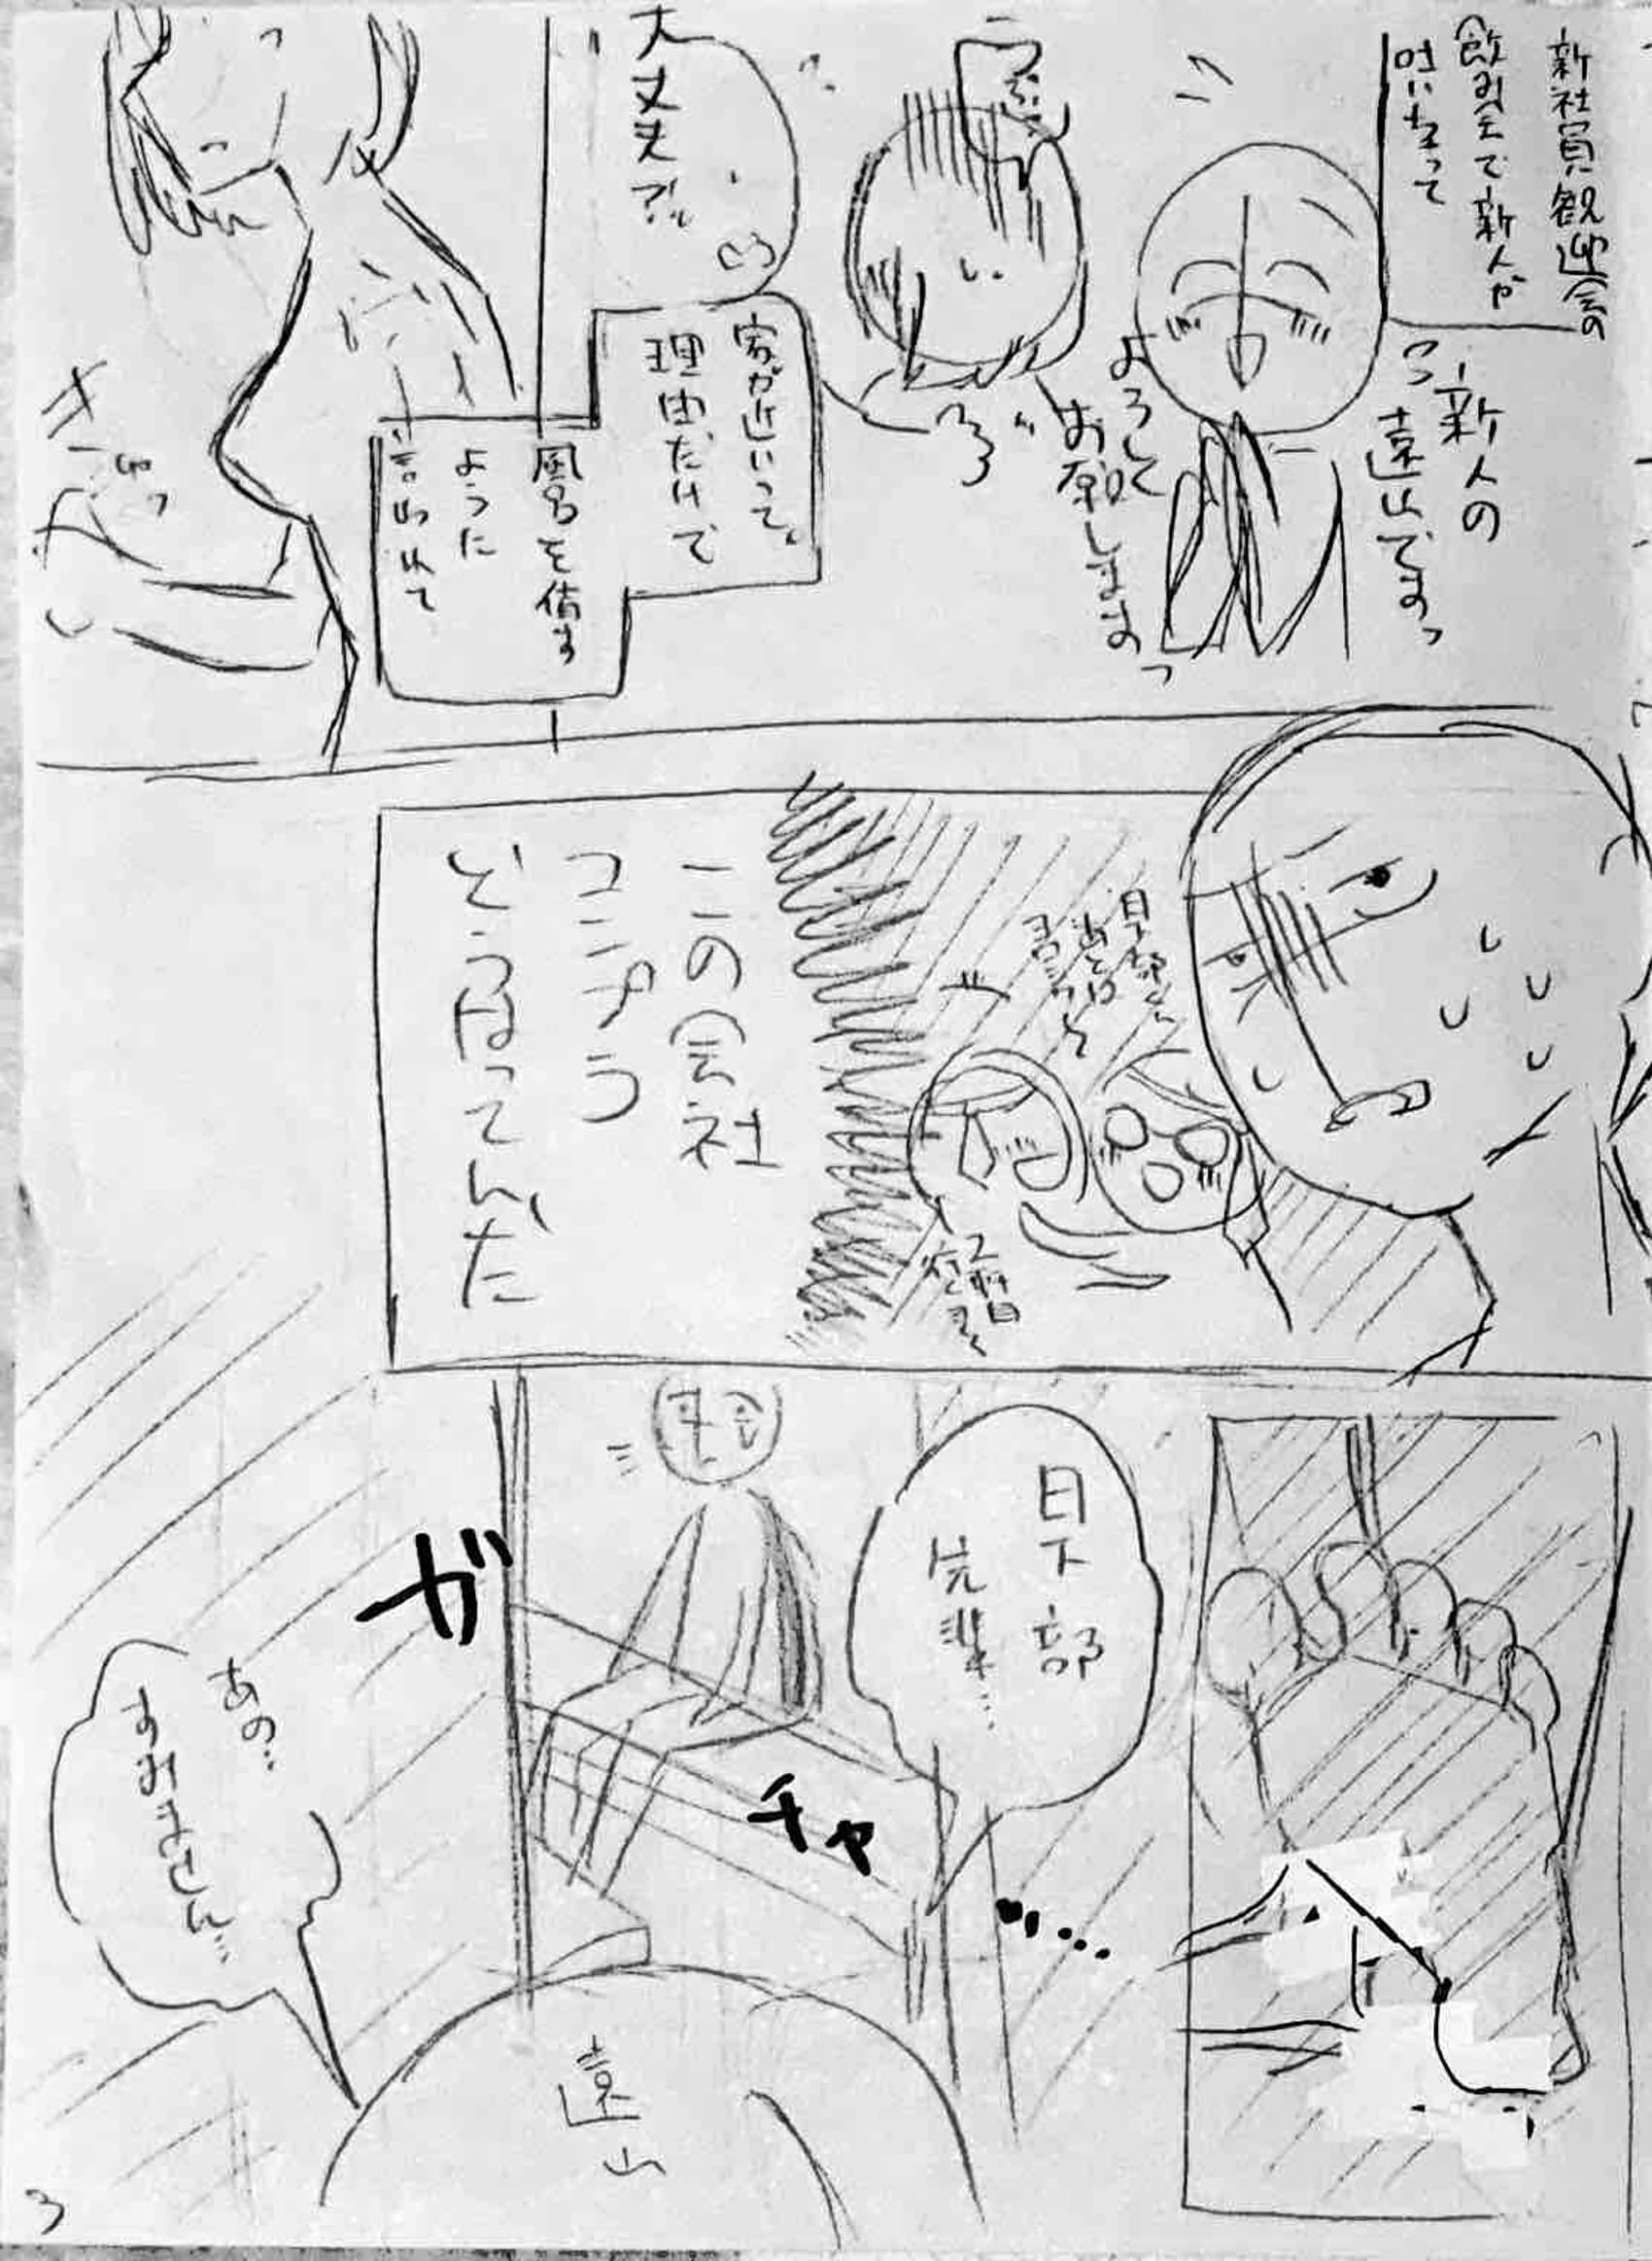 新社員歓迎会の
飲み会で新人が
酔いちって
新人の
遠山ですっ
よろしく
お願いしますっ
大丈夫?
家が近いって。
理由だけで
風呂を借す
ように
言われて
ぎゅっ
この会社
コンプラ
どうなってんだ
日下部
先輩…
ガ
チャ
あの…
すみません…
遠山
3